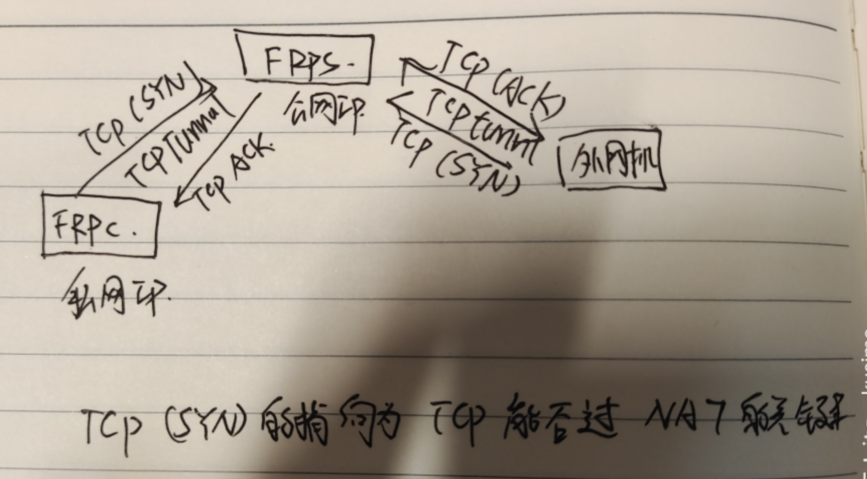 FRPS.
公网IP.
TCP (SYN)
TCP Tunnal
TCP ACK.
TCP (ACK)
TCP tunnl
TCP (SYN)
外网机
FRPC.
私网IP.
TCP (SYN) 的指向为 TCP 能否过 NAT 的关键